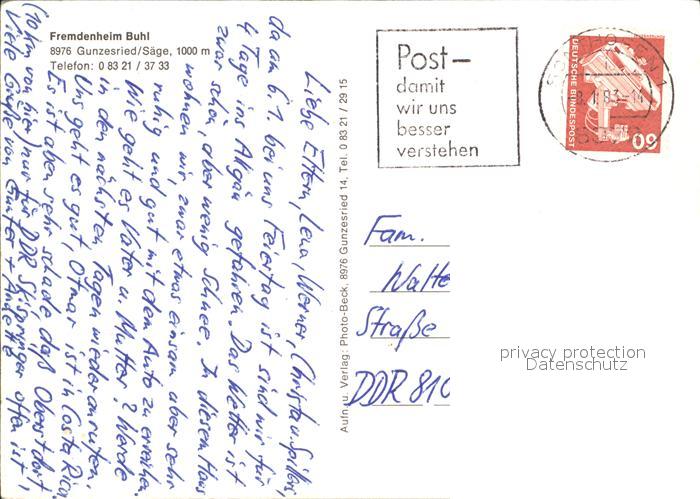 Fremdenheim Buhl
8976 Gunzesried/Säge, 1000 m
Telefon: 0 83 21 / 37 33
Liebe Eltern, Lena, Werner, Christa u.
da am 6.1. bei uns Feiertag ist sind wir für
4 Tage ins Allgäu gefahren. Das Wetter ist
zwar schön, aber wenig Schnee. In diesem Haus
wohnen wir, zwar etwas einsam aber sehr
ruhig und gut mit dem Auto zu erreichen.
Wie geht es Vater u. Mutter? Werde
in den nächsten Tagen wieder anrufen.
Uns geht es gut, Otmar ist in Costa Rica.
Es ist aber sehr schade daß Oberstdorf
(10 km von hier) nur für DDR Skispringer offen ist!
Viele Grüße von Günter + Annette
Aufn. u. Verlag: Photo-Beck, 8976 Gunzesried 14, Tel. 0 83 21 / 29 15
Post-
damit
wir uns
besser
verstehen
DEUTSCHE BUNDESPOST
60
.1.83-14
Fam.
Walte
Straße
DDR 810
privacy protection
Datenschutz